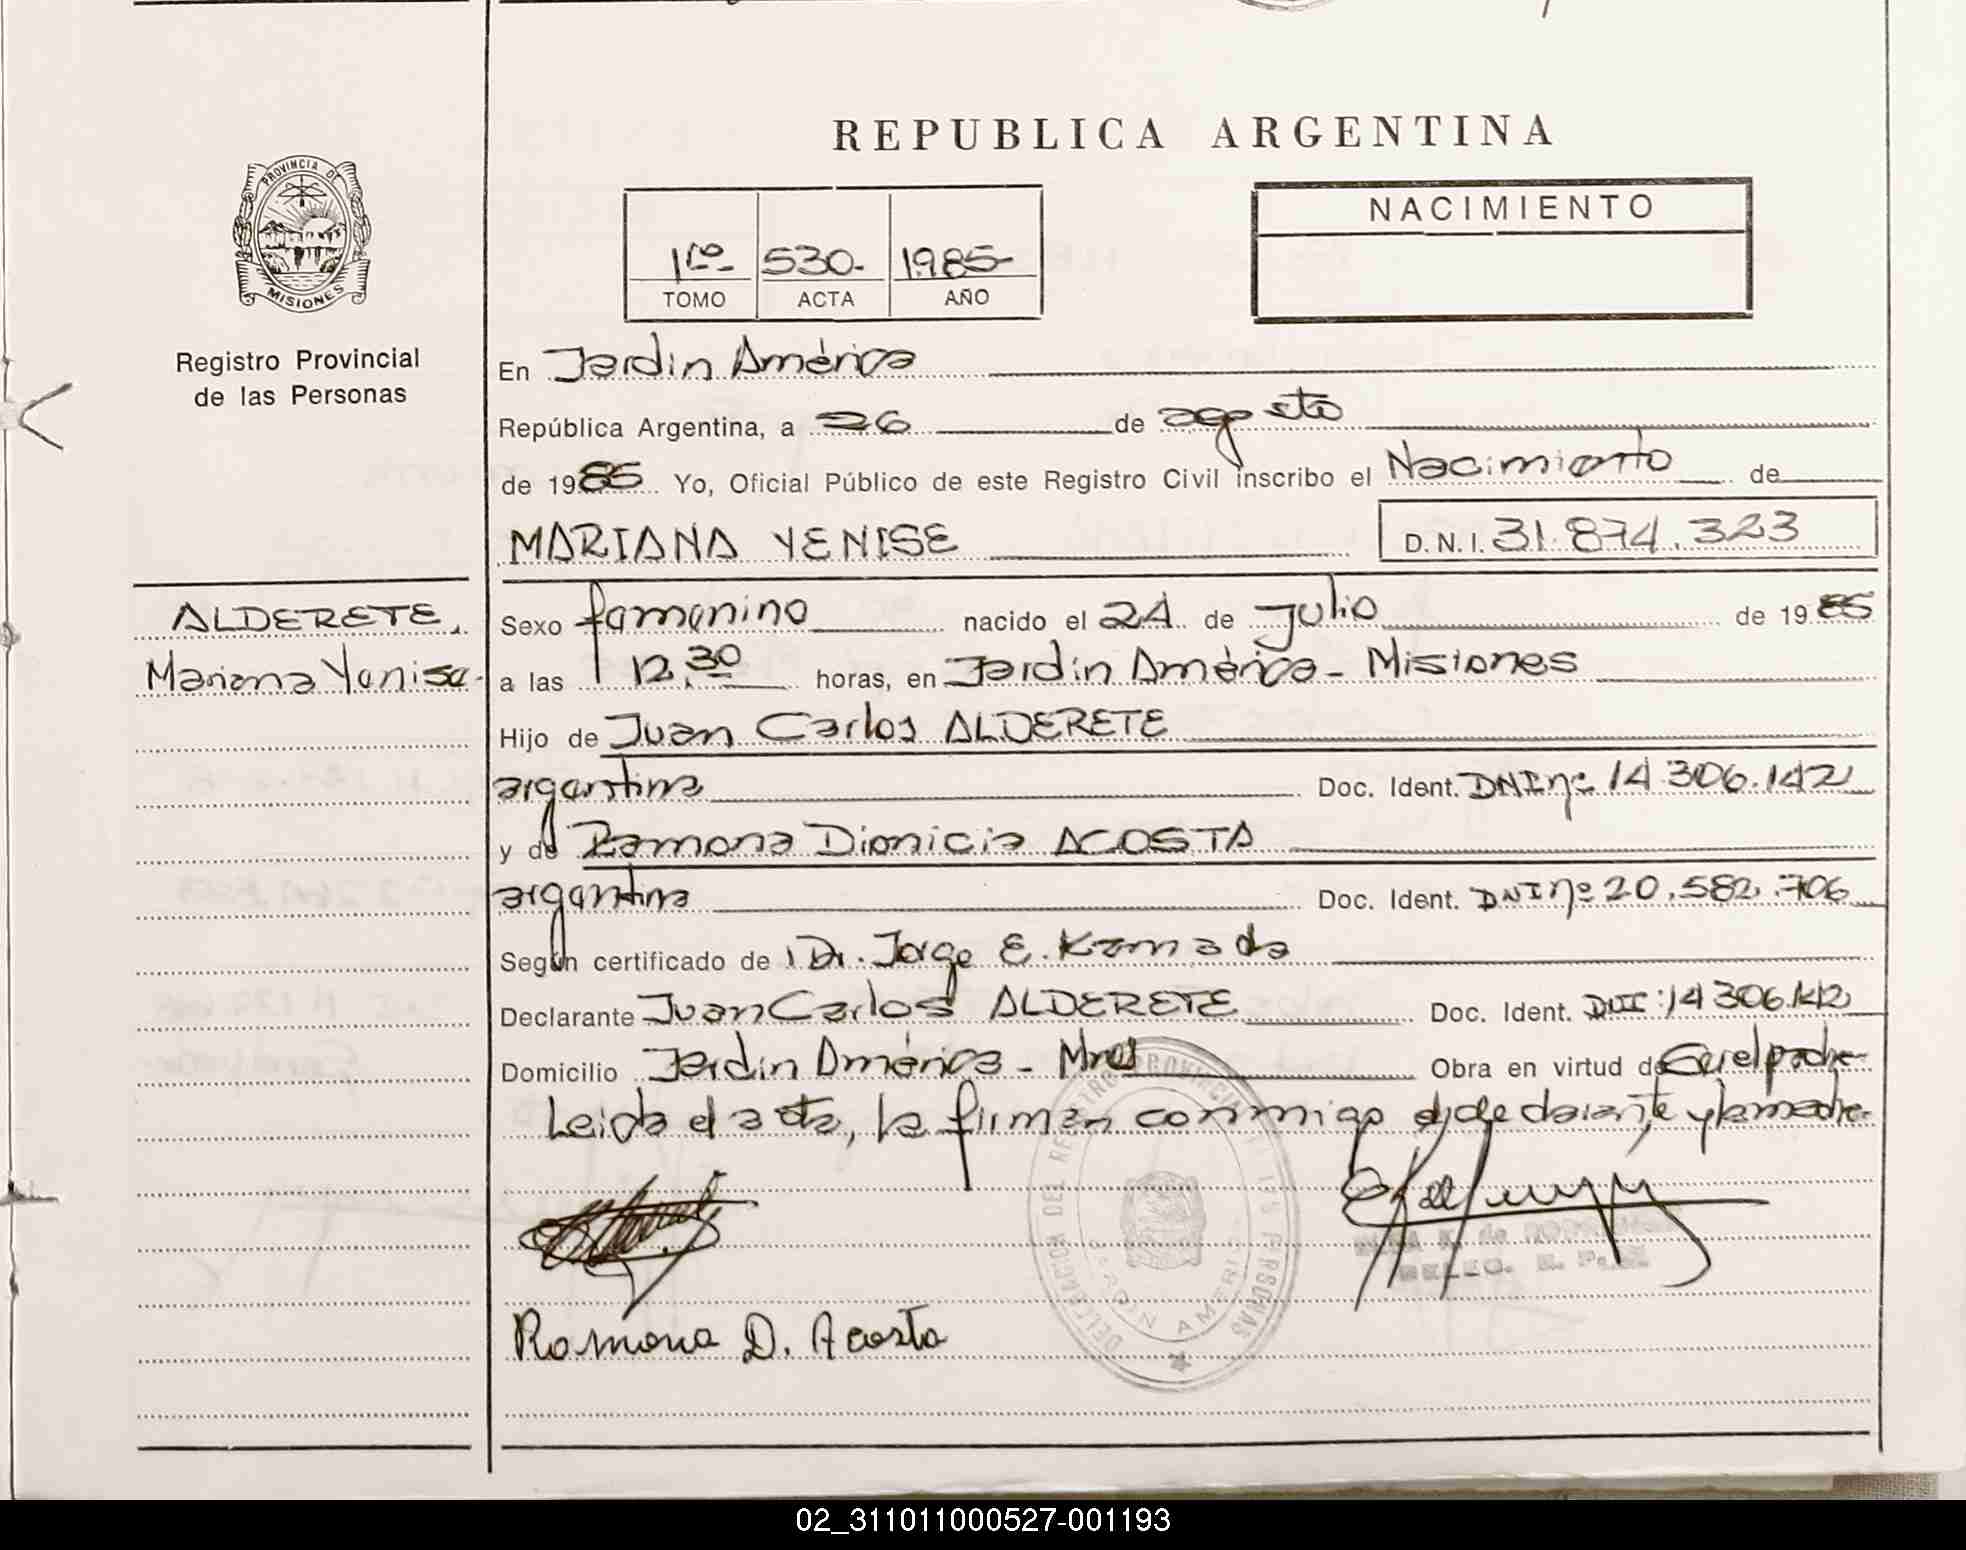 REPUBLICA ARGENTINA
PROVINCIA DE
MISIONES
Registro Provincial
de las Personas
NACIMIENTO
1ro- 530- 1985-
TOMO ACTA AÑO
En Jardin América
República Argentina, a 26 de agosto
de 1985 Yo, Oficial Público de este Registro Civil inscribo el Nacimiento de
MARIANA YENISE D.N.I. 31.874.323
ALDERETE,
Mariana Yenise-
Sexo femenino nacido el 24 de Julio de 1985
a las 12,30 horas, en Jardín América - Misiones
Hijo de Juan Carlos ALDERETE
argentina Doc. Ident. DNI nº 14.306.142
y de Ramona Dionicia ACOSTA
argentina Doc. Ident. DNI nº 20.582.706
Según certificado de Dr. Jorge E. Kamada
Declarante Juan Carlos ALDERETE Doc. Ident. DNI: 14.306.142
Domicilio Jardin América - Mnes Obra en virtud de Ser el padre-
Leida el acta, la firman conmigo el declarante y la madre-
DELEGACION DEL REGISTRO PROVINCIAL DE LAS PERSONAS
JARDIN AMERICA
DELEG. R. P.
Ramona D. Acosta
02_311011000527-001193